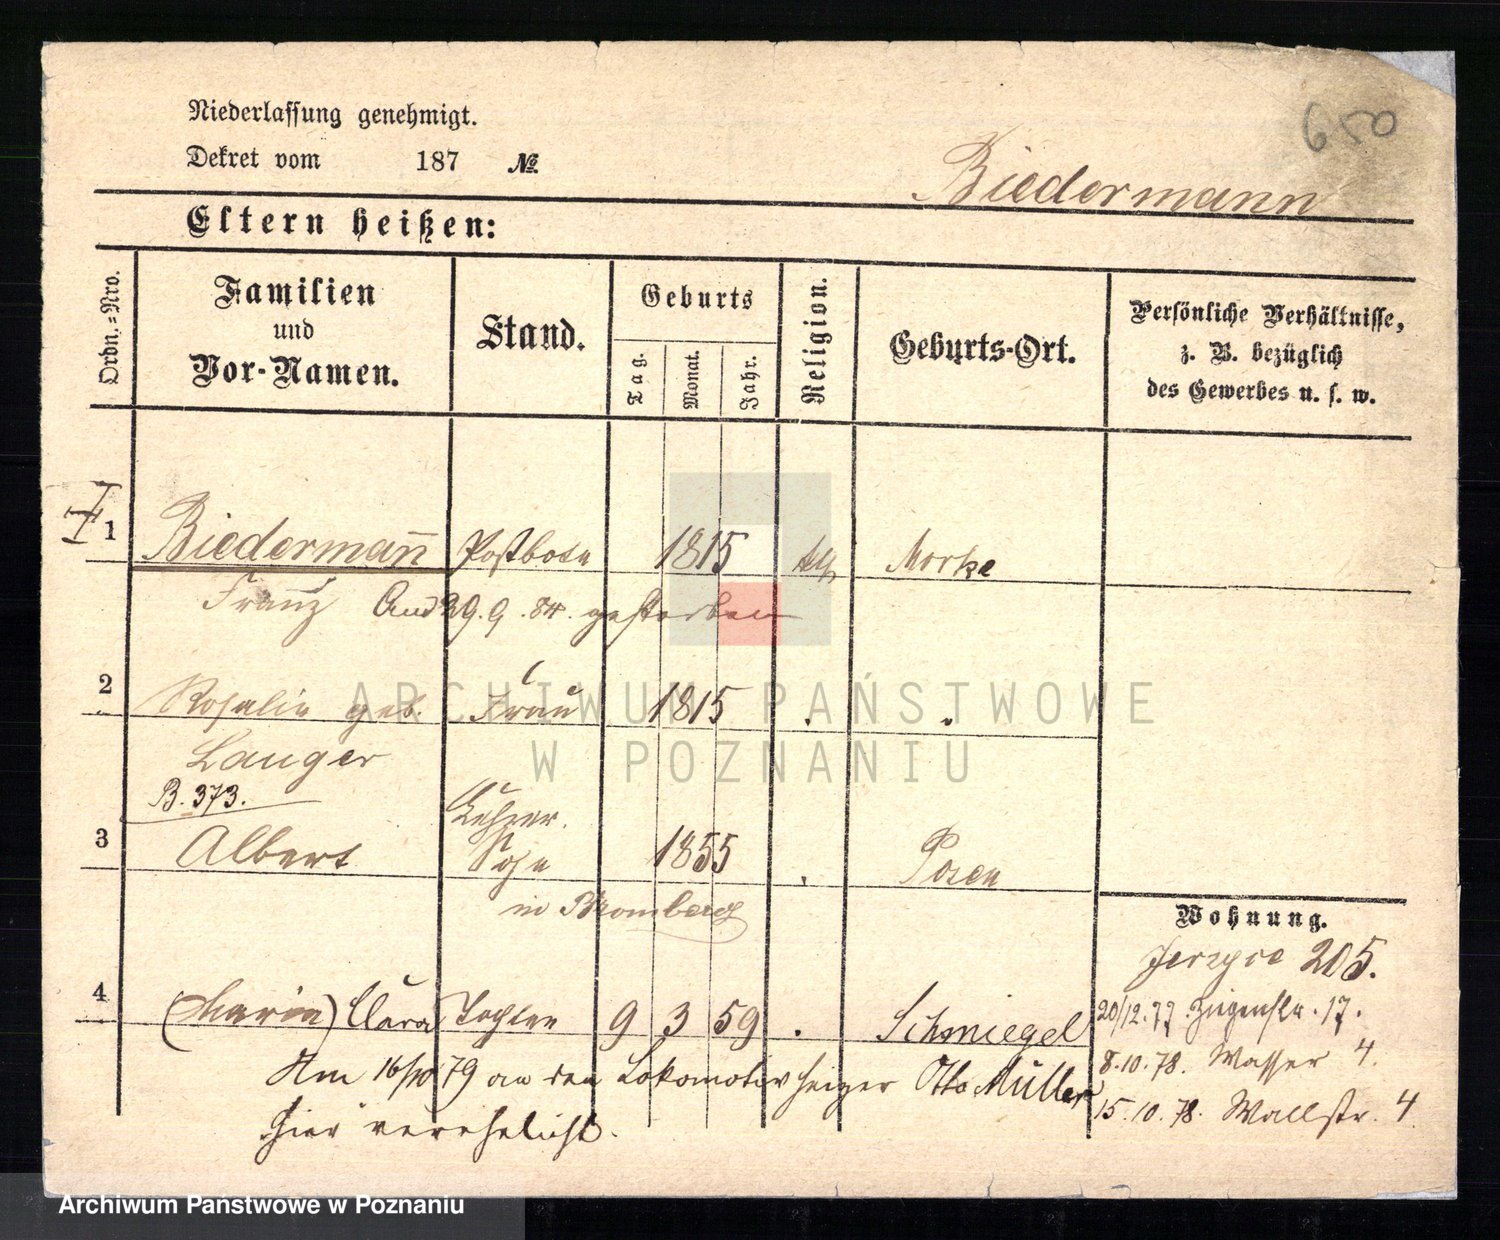 650
Niederlassung genehmigt.
Dekret vom 187 №
Biedermann
Eltern heißen:
Ordn.=Nro.
Familien
und
Vor-Namen.
Stand.
Geburts
Tag.
Monat.
Jahr.
Religion.
Geburts-Ort.
Persönliche Verhältnisse,
z. B. bezüglich
des Gewerbes u. s. w.
1 Biedermann̄ Postbote 1815 kth Morke
Franz Am 29.9.84. gestorben
2 Rosalie geb. Frau 1815 . .
Langer
B. 373.
Lehrer.
3 Albert Sohn 1855 . Posen
in Bromberg
4 (Maria) Clara Tochter 9 3 59 . Schmiegel
Am 16/10 79 an den Lokomotivheizer Otto Müller
hier verehelicht.
Wohnung.
Jerzyce 205.
20/12.77 Ziegenstr. 17.
8.10.78. Wasser 4.
15.10.78. Wallstr. 4
ARCHIWUM PAŃSTWOWE
W POZNANIU
Archiwum Państwowe w Poznaniu